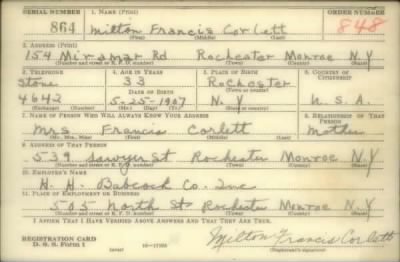 SERIAL NUMBER 1. NAME (Print) ORDER NUMBER
864 Milton Francis Corlett 848
(First) (Middle) (Last)
2. ADDRESS (Print)
154 Miramar Rd Rochester Monroe N.Y
(Number and street or R. F. D. number) (Town) (County) (State)
3. TELEPHONE 4. AGE IN YEARS 5. PLACE OF BIRTH 6. COUNTRY OF CITIZENSHIP
Stone 33 Rochester
4642 DATE OF BIRTH (Town or county)
5-25-1907 N.Y U.S.A.
(Exchange) (Number) (Mo.) (Day) (Yr.) (State or country)
7. NAME OF PERSON WHO WILL ALWAYS KNOW YOUR ADDRESS RELATIONSHIP OF THAT PERSON
Mrs Francis Corlett Mother
(Mr., Mrs., Miss) (First) (Middle) (Last)
9. ADDRESS OF THAT PERSON
539 Sawyer St Rochester Monroe N.Y
(Number and street or R. F. D. number) (Town) (County) (State)
10. EMPLOYER'S NAME
H. H. Babcock Co. Inc
11. PLACE OF EMPLOYMENT OR BUSINESS
505 North St Rochester Monroe N.Y
(Number and street or R. F. D. number) (Town) (County) (State)
I AFFIRM THAT I HAVE VERIFIED ABOVE ANSWERS AND THAT THEY ARE TRUE.
REGISTRATION CARD
D. S. S. Form 1
Milton Francis Corlett
(Registrant's signature)